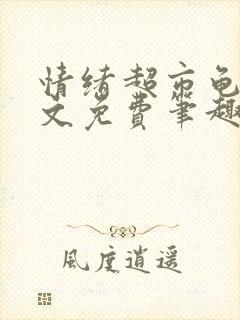 情绪超市龟
文免费笔趣
風度逍遥